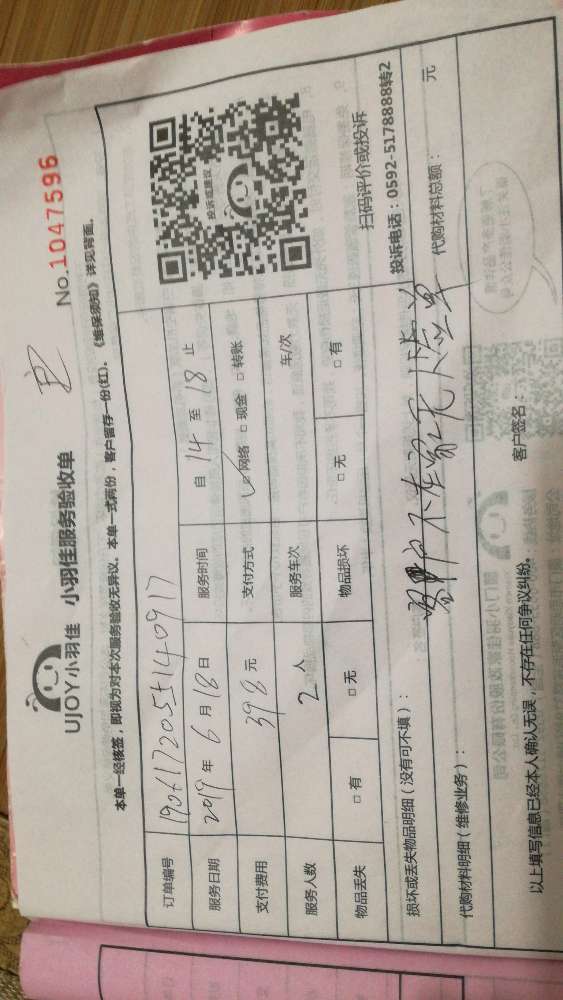 UJOY小羽佳 小羽佳服务验收单
No.1047596
本单一经核签，即视为对本次服务验收无异议。本单一式两份，客户留存一份(红)。《维保须知》详见背面。
订单编号 190617205514091
服务日期 2019 年 6 月 18 日 服务时间 自 14 至 18 止
支付费用 398 元 支付方式 ☑网络 □现金 □转账
服务人数 2 人 服务车次 车/次
物品丢失 □有 □无 物品损坏 □无 □有
投诉或建议
扫码评价或投诉
投诉电话：0592-5178888转2
损坏或丢失物品明细（没有可不填）：
客户不在家无验单
代购材料明细（维修业务）： 代购材料总额： 元
以上填写信息已经本人确认无误，不存在任何争议纠纷。 客户签名：